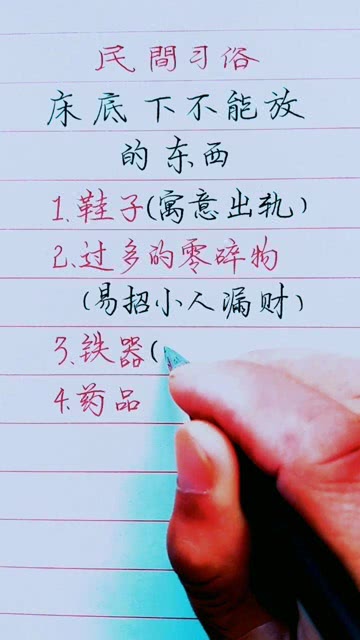 民間习俗
床底下不能放
的东西
1.鞋子(寓意出轨)
2.过多的零碎物
(易招小人漏财)
3.铁器(
4.药品